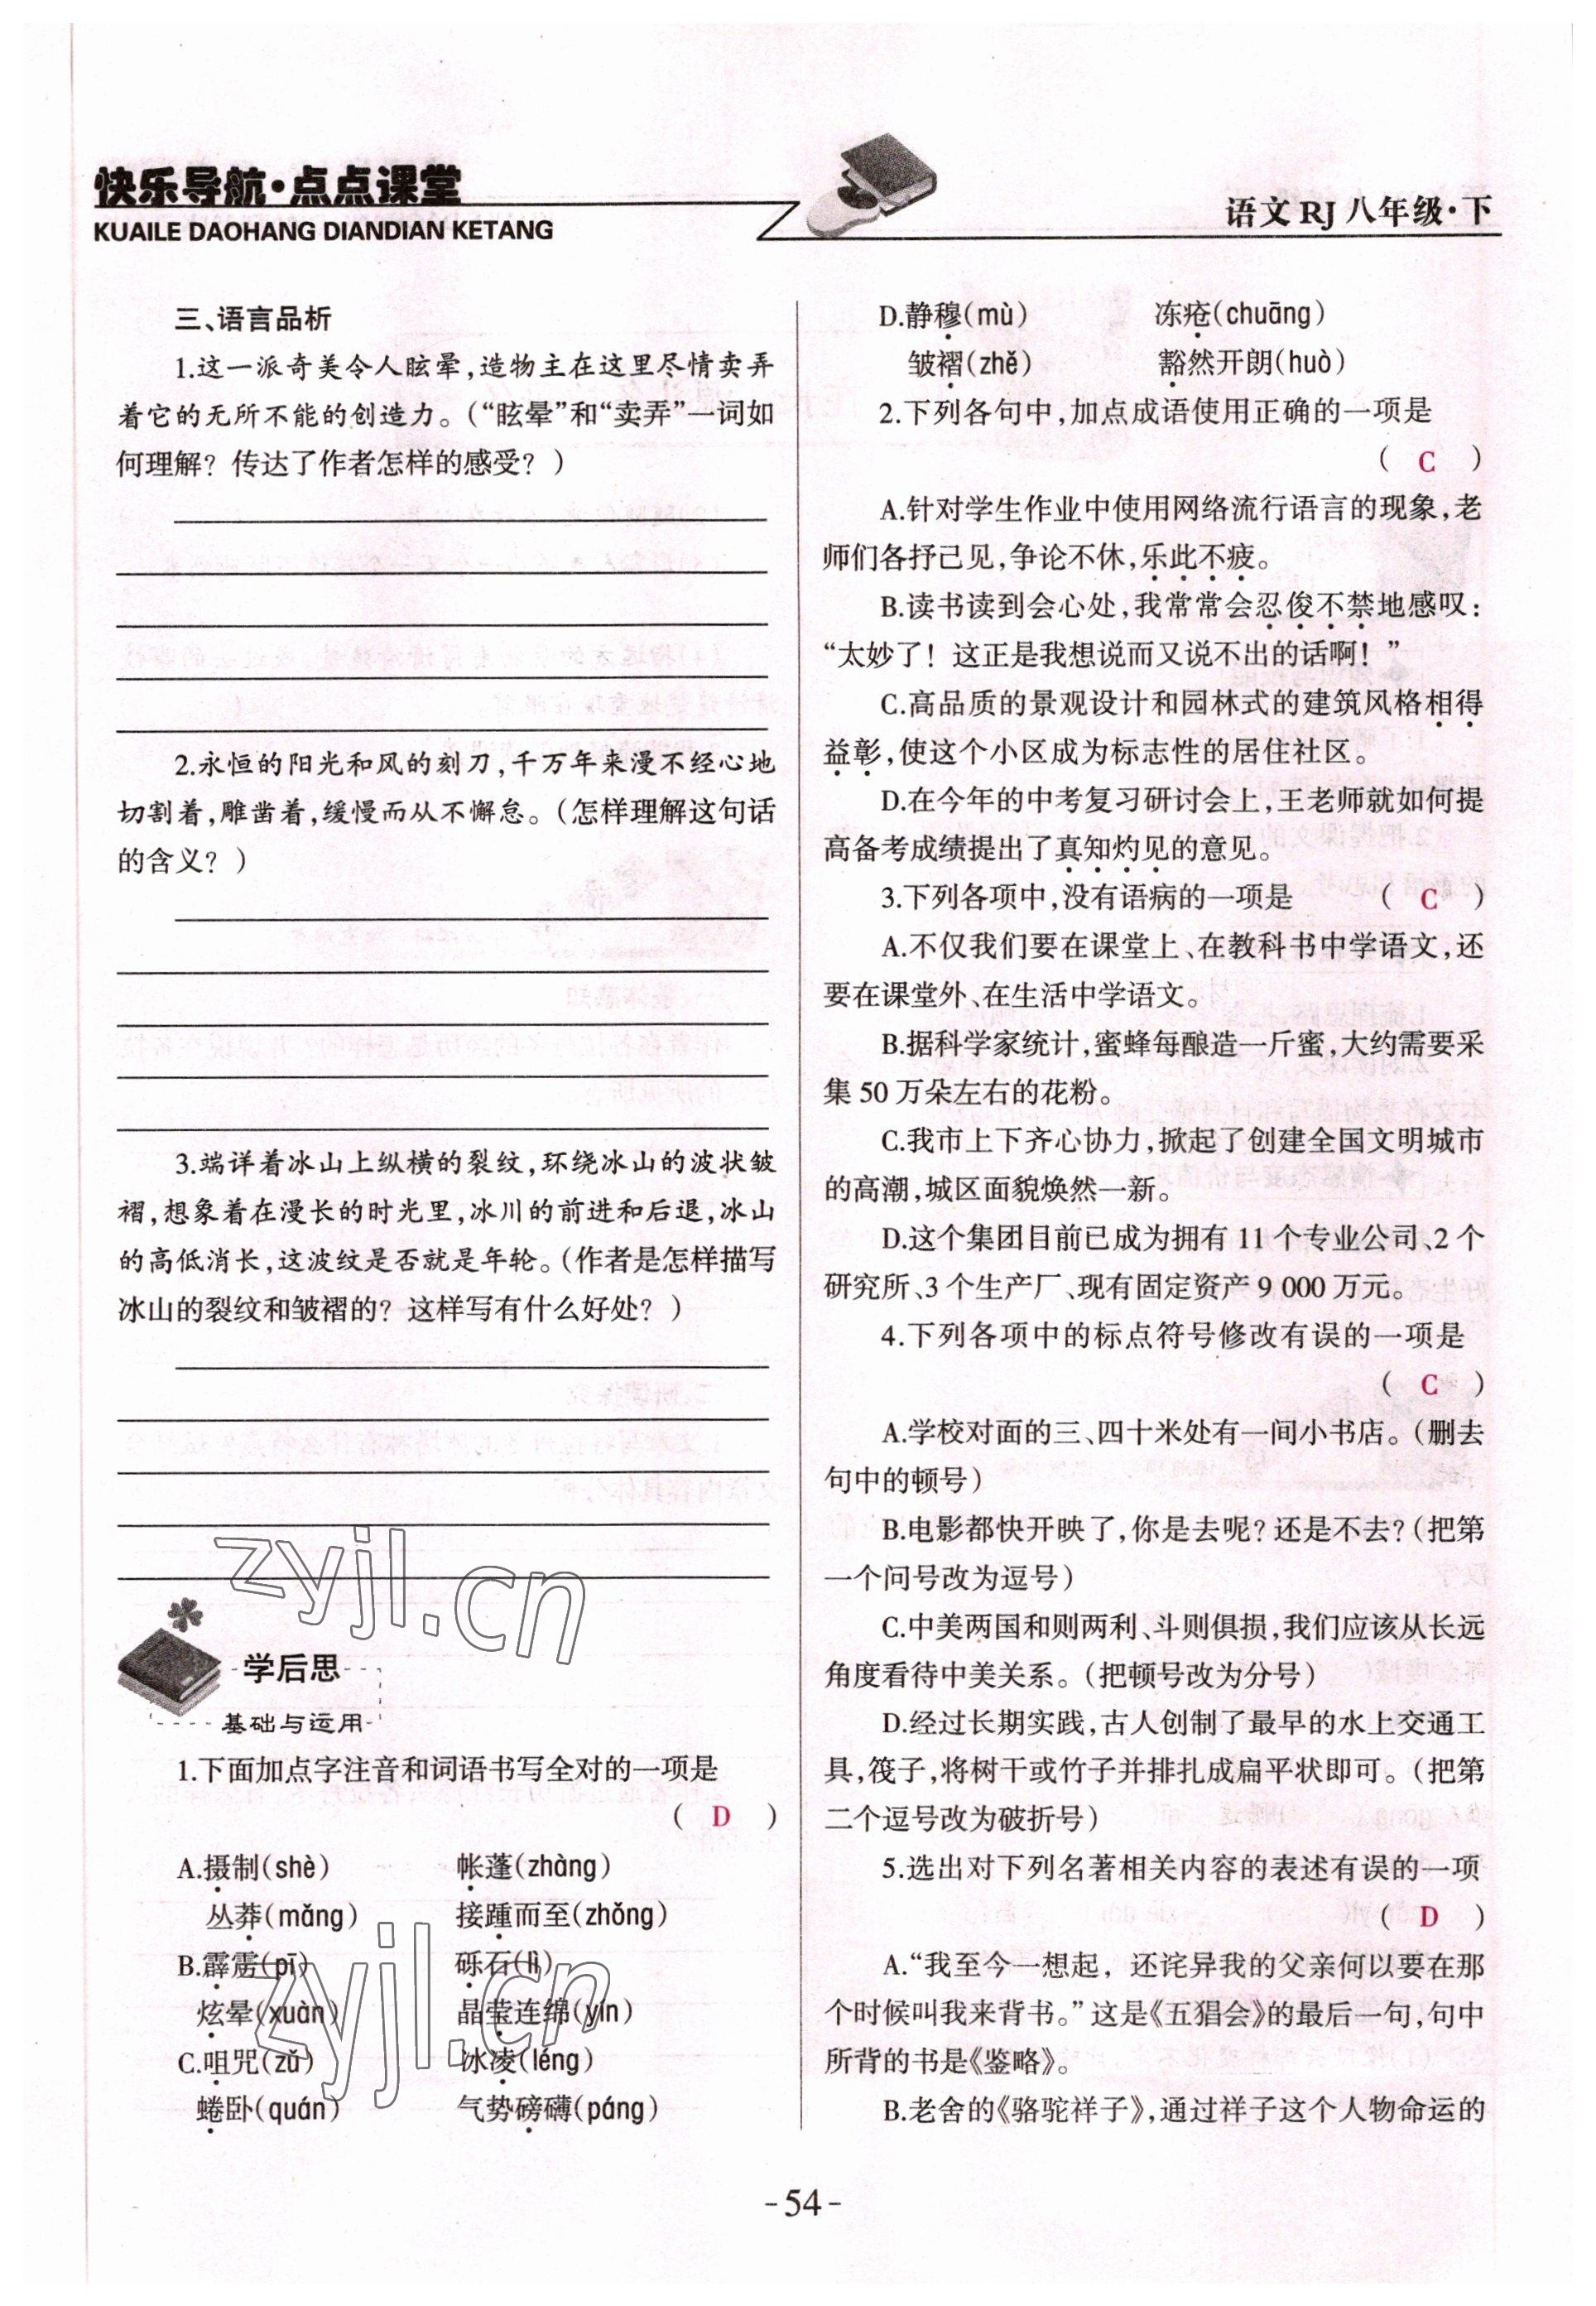 快乐导航·点点课堂
KUAILE DAOHANG DIANDIAN KETANG
语文 RJ 八年级·下
三、语言品析
1.这一派奇美令人眩晕,造物主在这里尽情卖弄
着它的无所不能的创造力。(“眩晕”和“卖弄”一词如
何理解?传达了作者怎样的感受?)
2.永恒的阳光和风的刻刀,千万年来漫不经心地
切割着,雕凿着,缓慢而从不懈怠。(怎样理解这句话
的含义?)
3.端详着冰山上纵横的裂纹,环绕冰山的波状皱
褶,想象着在漫长的时光里,冰川的前进和后退,冰山
的高低消长,这波纹是否就是年轮。(作者是怎样描写
冰山的裂纹和皱褶的?这样写有什么好处?)
学后思
基础与运用
1.下面加点字注音和词语书写全对的一项是
( D )
A.摄制(shè) 帐蓬(zhàng)
丛莽(mǎng) 接踵而至(zhǒng)
B.霹雳(pī) 砾石(lì)
炫晕(xuàn) 晶莹连绵(yín)
C.咀咒(zǔ) 冰凌(léng)
蜷卧(quán) 气势磅礴(páng)
D.静穆(mù) 冻疮(chuāng)
皱褶(zhě) 豁然开朗(huò)
2.下列各句中,加点成语使用正确的一项是
( C )
A.针对学生作业中使用网络流行语言的现象,老
师们各抒己见,争论不休,乐此不疲。
B.读书读到会心处,我常常会忍俊不禁地感叹:
“太妙了!这正是我想说而又说不出的话啊!”
C.高品质的景观设计和园林式的建筑风格相得
益彰,使这个小区成为标志性的居住社区。
D.在今年的中考复习研讨会上,王老师就如何提
高备考成绩提出了真知灼见的意见。
3.下列各项中,没有语病的一项是 ( C )
A.不仅我们要在课堂上、在教科书中学语文,还
要在课堂外、在生活中学语文。
B.据科学家统计,蜜蜂每酿造一斤蜜,大约需要采
集 50 万朵左右的花粉。
C.我市上下齐心协力,掀起了创建全国文明城市
的高潮,城区面貌焕然一新。
D.这个集团目前已成为拥有 11 个专业公司、2 个
研究所、3 个生产厂、现有固定资产 9 000 万元。
4.下列各项中的标点符号修改有误的一项是
( C )
A.学校对面的三、四十米处有一间小书店。(删去
句中的顿号)
B.电影都快开映了,你是去呢?还是不去?(把第
一个问号改为逗号)
C.中美两国和则两利、斗则俱损,我们应该从长远
角度看待中美关系。(把顿号改为分号)
D.经过长期实践,古人创制了最早的水上交通工
具,筏子,将树干或竹子并排扎成扁平状即可。(把第
二个逗号改为破折号)
5.选出对下列名著相关内容的表述有误的一项
( D )
A.“我至今一想起,还诧异我的父亲何以要在那
个时候叫我来背书。”这是《五猖会》的最后一句,句中
所背的书是《鉴略》。
B.老舍的《骆驼祥子》,通过祥子这个人物命运的
-54-
zyjl.cn
zyjl.cn